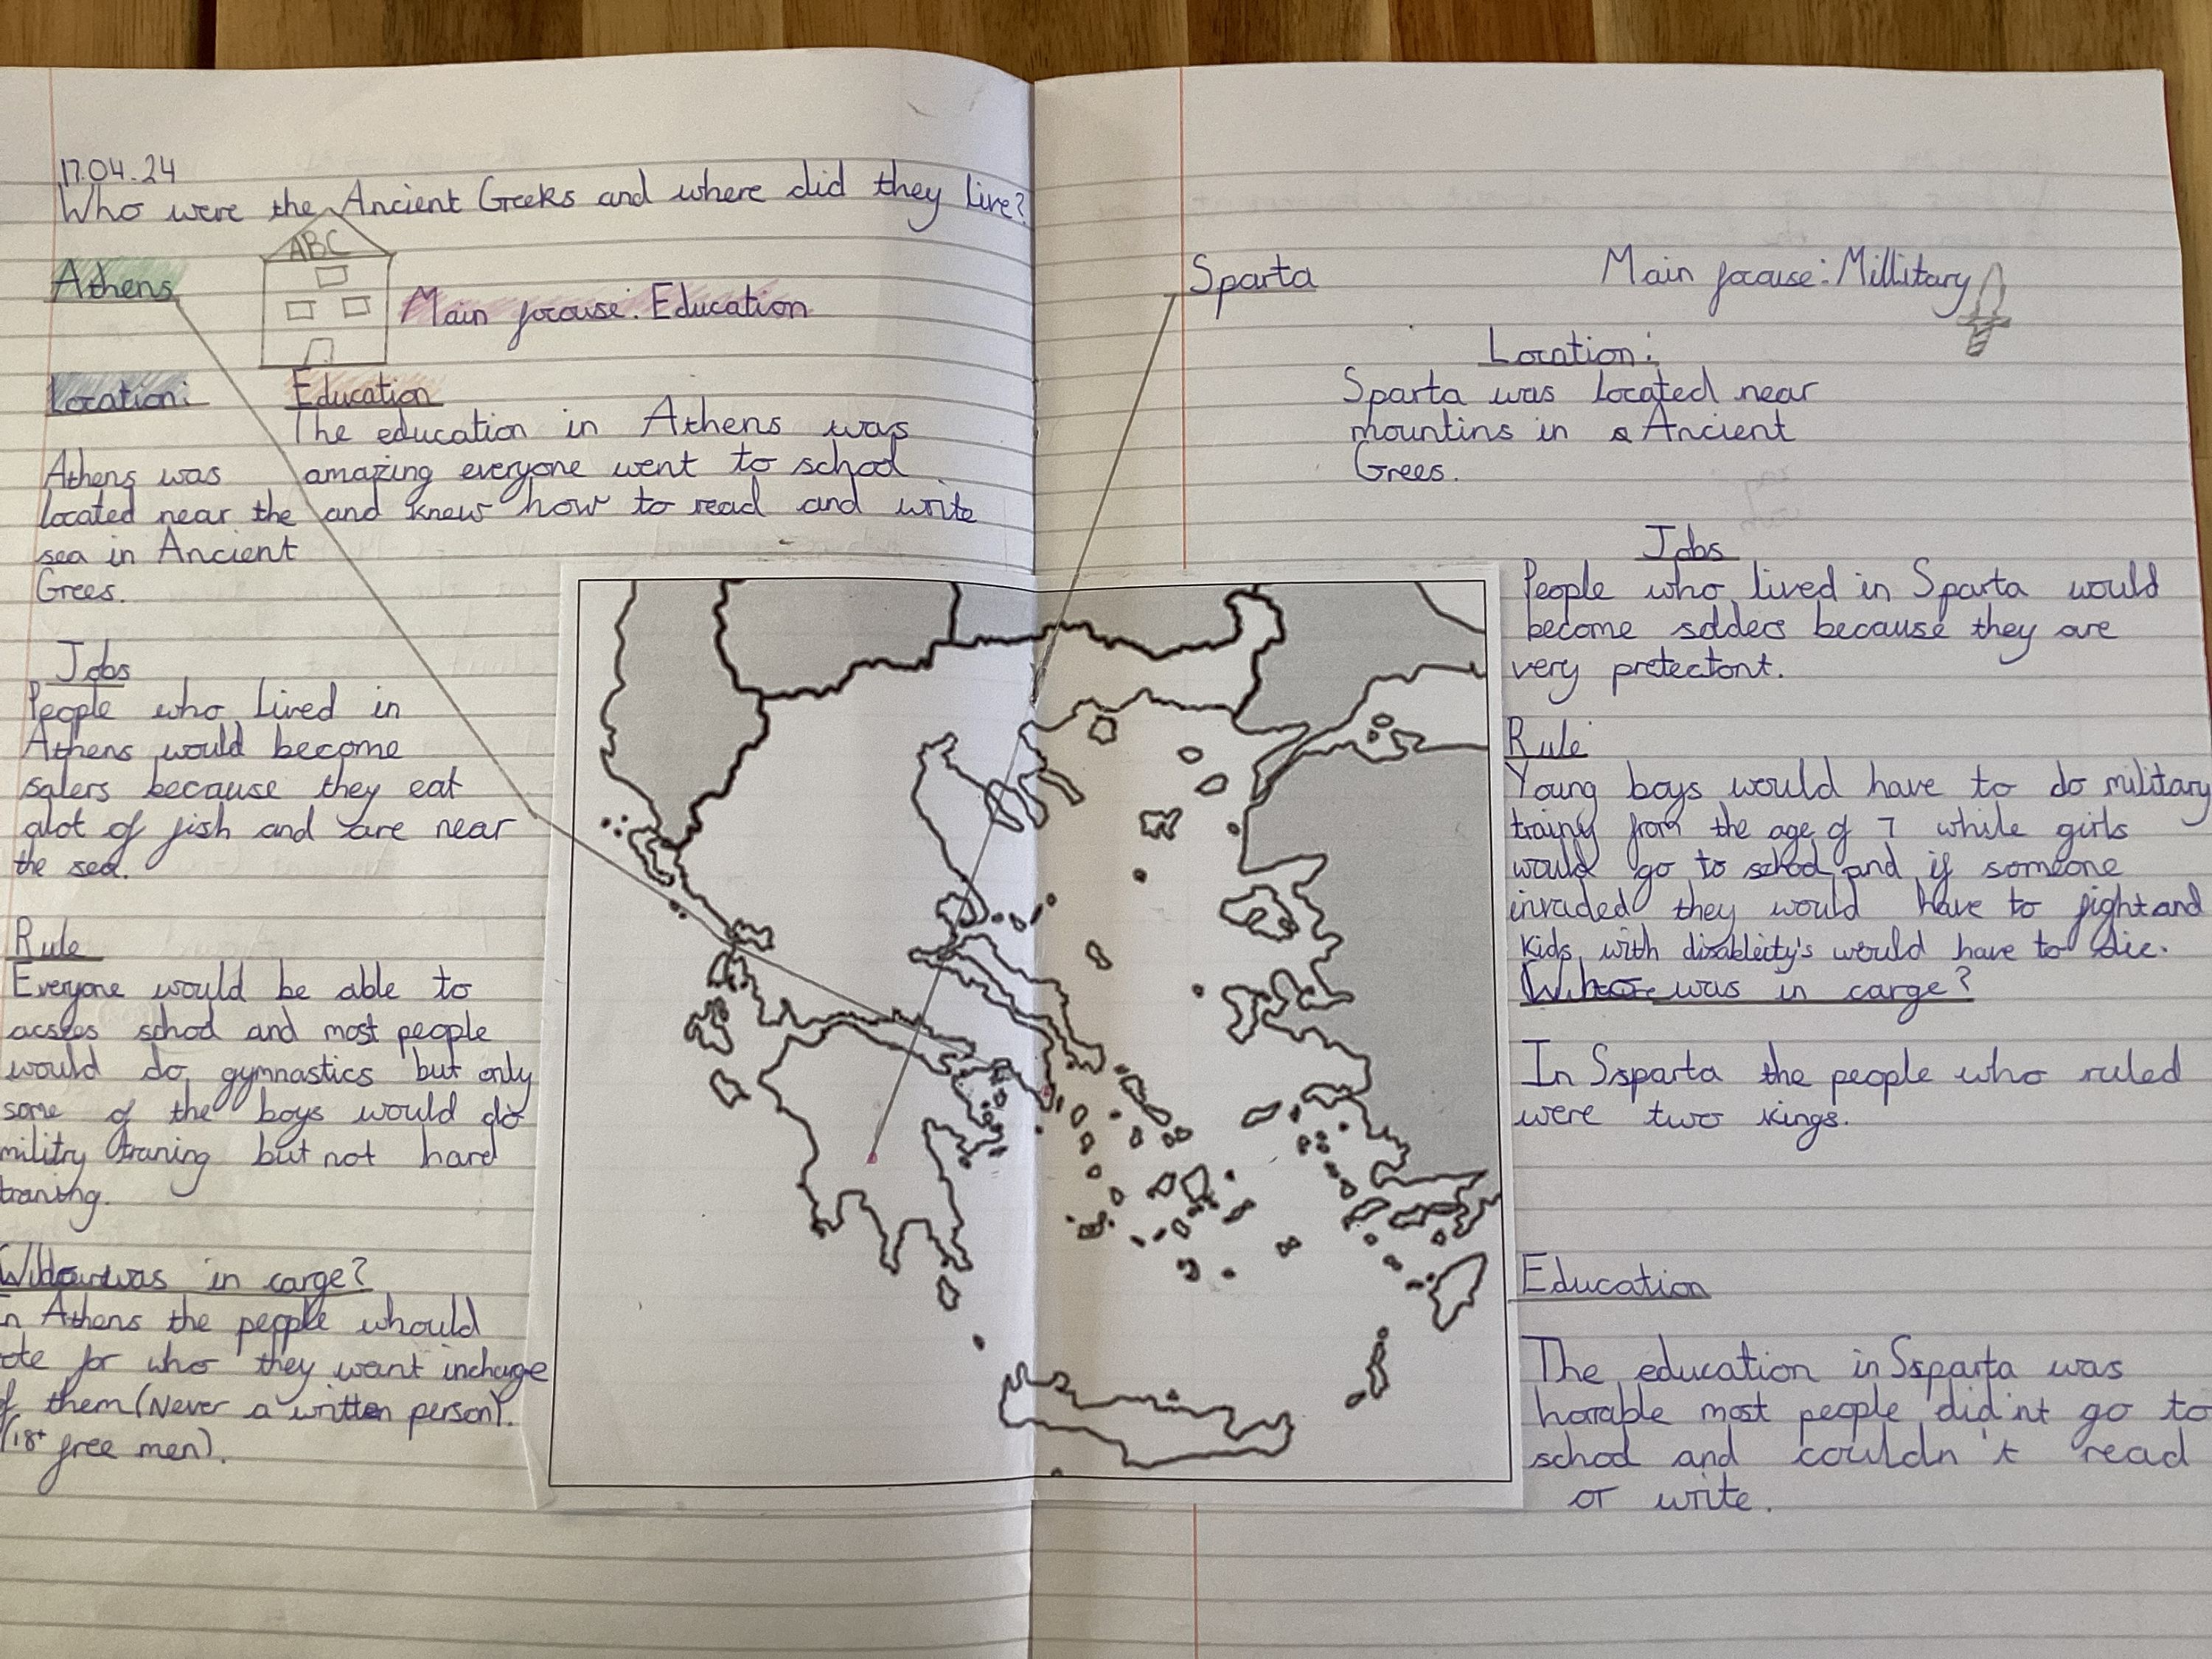 17.04.24
Who were the Ancient Greeks and where did they live?
ABC
Athens
Main focuse: Education
Location:
Athens was
located near the
sea in Ancient
Grees.
Education
The education in Athens was
amazing everyone went to school
and knew how to read and write
Jobs
People who lived in
Athens would become
salers because they eat
alot of fish and are near
the sea.
Rule
Everyone would be able to
acsees school and most people
would do gymnastics but only
some of the boys would do
militry traning but not hard
traning.
was in carge?
In Athens the people whould
ote for who they want incharge
of them (Never a person).
(18+ free men).
Sparta
Main focuse: Millitary
Location:
Sparta was located near
mountins in a Ancient
Grees.
Jobs
People who lived in Sparta would
become solders because they are
very pretectont.
Rule
Young boys would have to do military
trainy from the age of 7 while girls
would go to school and if someone
invaded they would have to fight and
kids with disableity's would have to die.
was in carge?
In Ssparta the people who ruled
were two kings.
Education
The education in Ssparta was
horrable most people did'nt go to
school and couldn't read
or write.